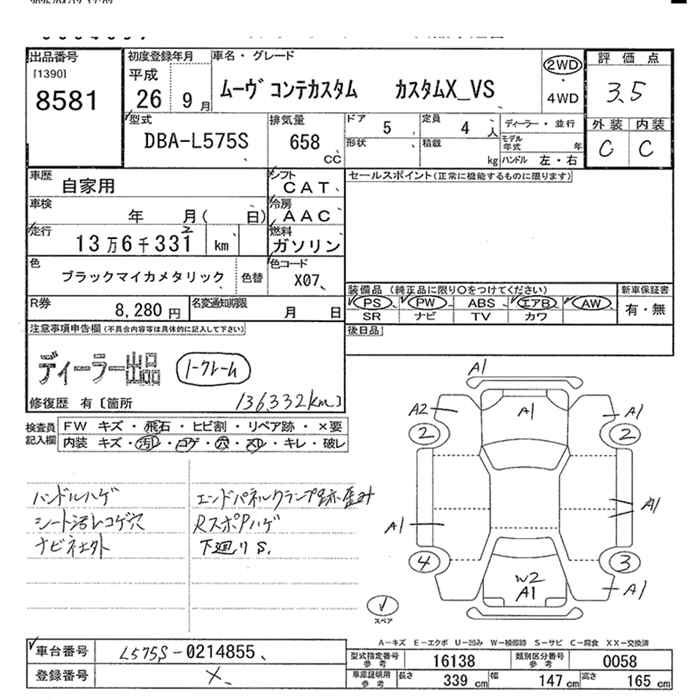 出品番号
[1390]
8581
初度登録年月
平成
26年9月
車名・グレード
ムーヴ コンテカスタム カスタムX_VS
2WD
・
4WD
評価点
3.5
外装 内装
C C
型式
DBA-L575S
排気量
658
CC
ドア 5
定員 4人
ディーラー・並行
形状
積載 kg
モデル年式 年
ハンドル 左・右
車歴 自家用
シフト CAT
セールスポイント(正常に機能するものに限ります)
車検 年 月( 日)
冷房 AAC
走行 13万6千331 km
2
燃料 ガソリン
色 ブラックマイカメタリック 色替
色コード X07
装備品 (純正品に限り○をつけてください) 新車保証書
PS PW ABS エアB AW
SR ナビ TV カワ
有・無
R券 8,280円
名変通知期限 月 日
後日品
注意事項申告欄(不具合内容等は具体的に記入して下さい)
ディーラー出品 ノークレーム
修復歴 有〔箇所 136332km〕
検査員記入欄
FW キズ・飛石・ヒビ割・リペア跡・×要
内装 キズ・汚レ・コゲ・穴・スレ・キレ・破レ
ハンドルハゲ
シート汚レコゲ穴
ナビネエト
エンドパネルクランプ跡歪み
RスポPハゲ
下廻りS
A1
A2 A1 A1
2 2
A1 A1
4 3
W2
A1
A1
スペア
A-キズ E-エクボ U-凹み W-補修跡 S-サビ C-腐食 XX-交換済
車台番号 L575S-0214855
登録番号 X
型式指定番号 参考 16138
類別区分番号 参考 0058
車庫証明用 参考 長さ 339 cm 幅 147 cm 高さ 165 cm